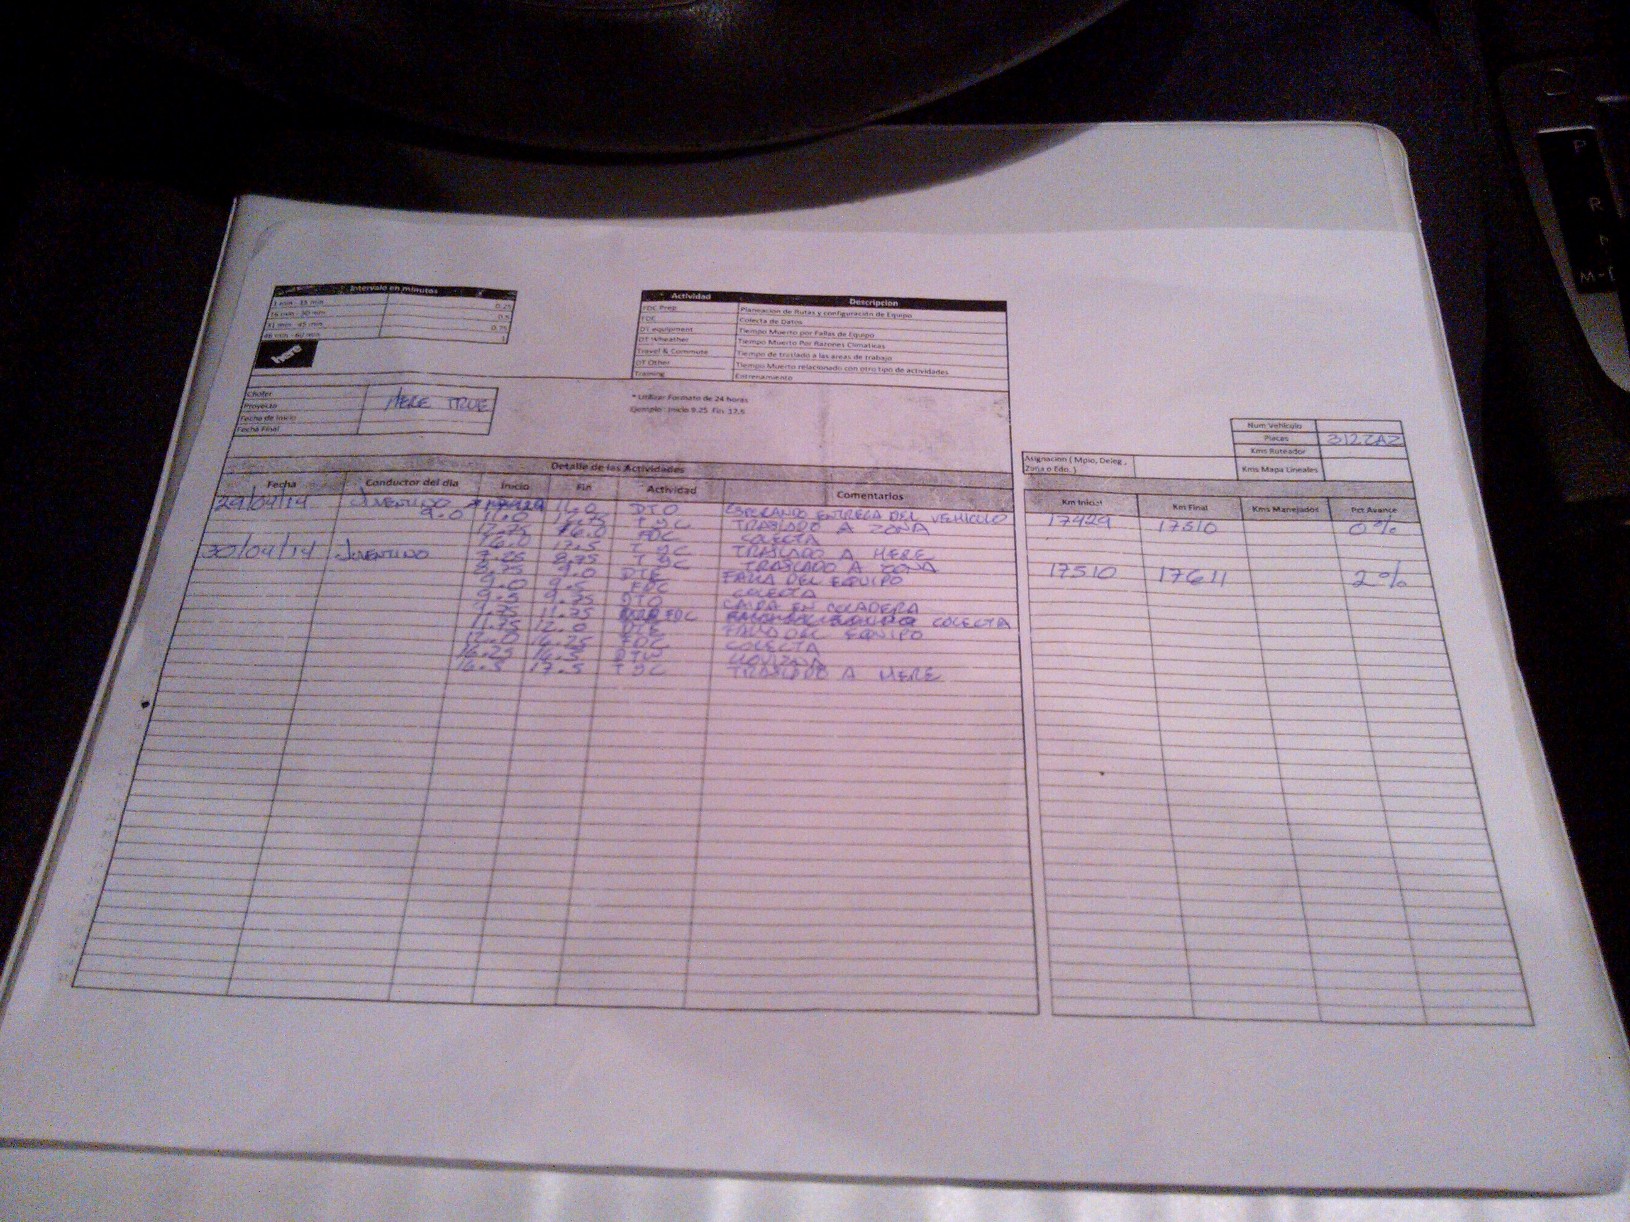 Intervalo en minutos
1 min - 15 min 0.25
16 min - 30 min 0.5
31 min - 45 min 0.75
46 min - 60 min 1
here
Actividad Descripcion
FDC Prep Planeacion de Rutas y configuración de Equipo
FDC Colecta de Datos
DT equipment Tiempo Muerto por Fallas de Equipo
DT Wheather Tiempo Muerto Por Razones Climaticas
Travel & Commute Tiempo de traslado a las areas de trabajo
DT Other Tiempo Muerto relacionado con otro tipo de actividades
Training Entrenamiento
Chofer
Proyecto HERE TRUE
Fecha de Inicio
Fecha Final
* Utilizar Formato de 24 horas
Ejemplo : Inicio 9.25 Fin 17.5
Num Vehiculo
Placas 312ZAZ
Kms Ruteador
Kms Mapa Lineales
Asignacion ( Mpio, Deleg ,
Zona o Edo. )
Detalle de las Actividades
Fecha Conductor del dia Inicio Fin Actividad Comentarios Km Inicial Km Final Kms Manejados Pct Avance
29/04/14 JUVENTINO 9.0 14.0 DTO ESPERANDO ENTREGA DEL VEHICULO 17429 17510 0%
T&C TRASLADO A ZONA
FDC COLECTA
16.0 17.5 T&C TRASLADO A HERE
30/04/14 JUVENTINO 7.25 8.75 T&C TRASLADO A ZONA 17510 17611 2%
8.75 9.0 DTE FALLA DEL EQUIPO
9.0 9.5 FDC COLECTA
9.5 9.75 DTO CAIDA EN COLADERA
9.75 11.75 FDC COLECTA
11.75 12.0 DTE FALLO DEL EQUIPO
12.0 14.25 FDC COLECTA
14.25 14.5 DTW LLOVIZNA
14.5 17.5 T&C TRASLADO A HERE
P
R
N